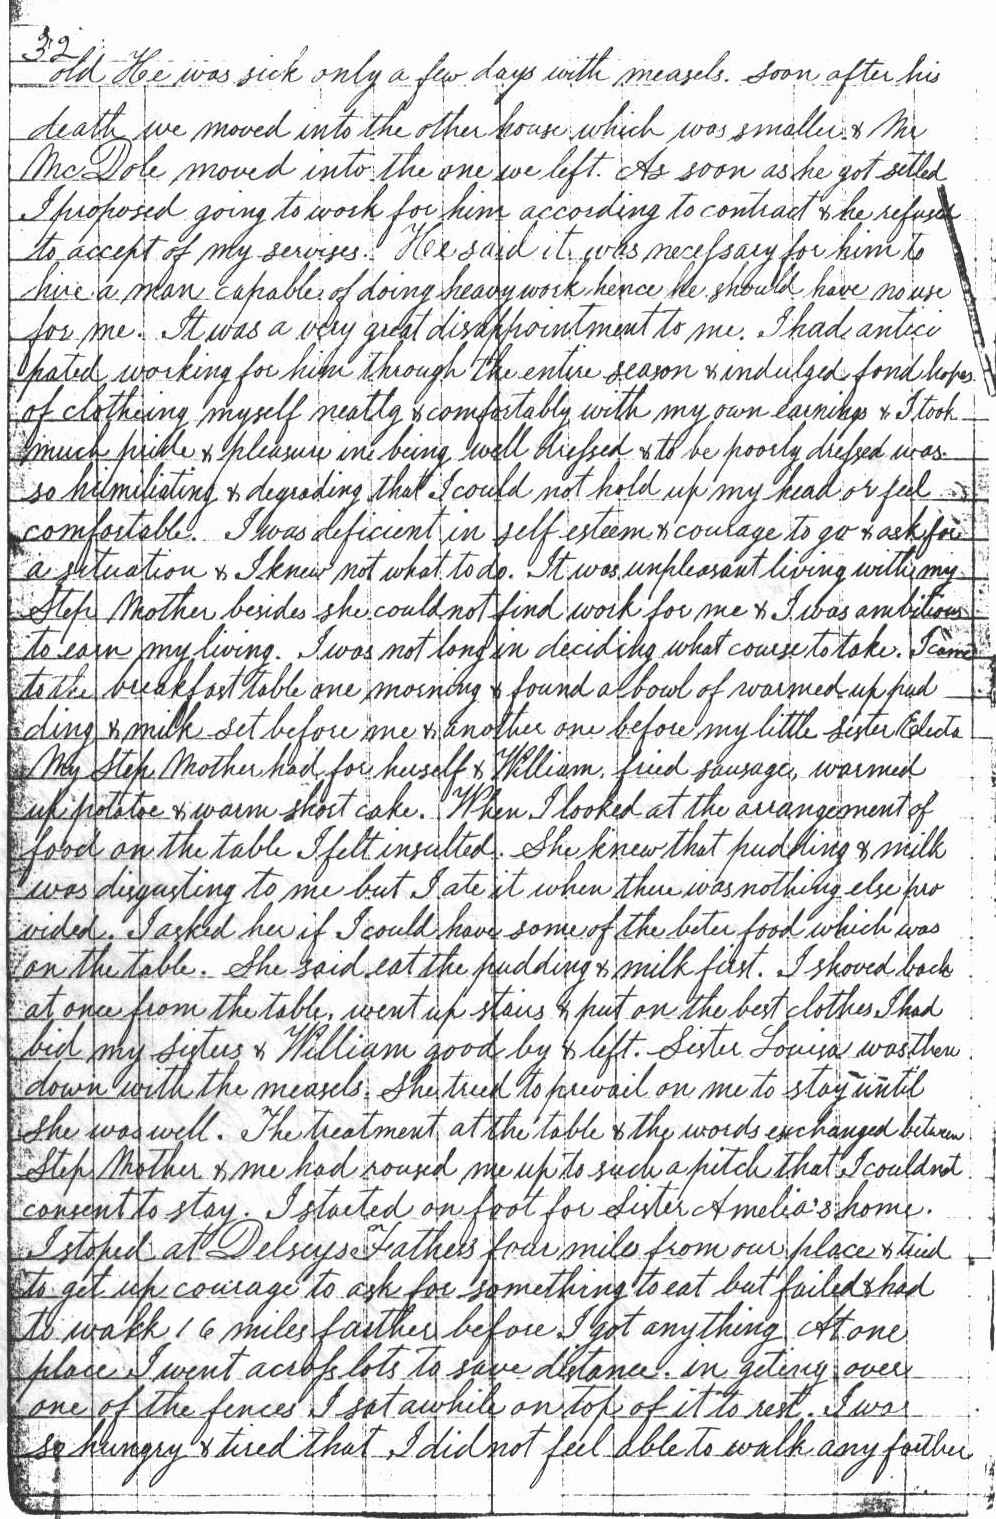 32
old He was sick only a few days with measels. Soon after his
death we moved into the other house which was smaller & Mr
McDole moved into the one we left. As soon as he got setled
I proposed going to work for him according to contract & he refused
to accept of my servises. He said it was necessary for him to
hire a man capable of doing heavy work hence he should have no use
for me. It was a very great disappointment to me. I had antici
pated working for him through the entire season & indulged fond hopes
of clotheing myself neatly & comfortably with my own earnings & I took
much pride & pleasure in being well dressed & to be poorly dressed was
so humiliating & degrading that I could not hold up my head or feel
comfortable. I was deficient in self esteem & courage to go & ask for
a situation & I knew not what to do. It was unpleasant living with my
Step Mother besides she could not find work for me & I was ambitious
to earn my living. I was not long in deciding what course to take. I came
to the breakfast table one morning & found a bowl of warmed up pud
ding & milk set before me & another one before my little sister Electa
My Step Mother had for herself & William, fried sausage, warmed
up potatoe & warm short cake. When I looked at the arrangement of
food on the table I felt insulted. She knew that pudding & milk
was disgusting to me but I ate it when there was nothing else pro
vided. I asked her if I could have some of the beter food which was
on the table. She said eat the pudding & milk first. I shoved back
at once from the table, went up stairs & put on the best clothes I had
bid my sisters & William good by & left. Sister Louisa was then
down with the measels. She tried to prevail on me to stay until
she was well. The treatment at the table & the words exchanged between
Step Mother & me had roused me up to such a pitch that I could not
consent to stay. I started on foot for Sister Amelia's home.
I stoped at Delseys Fathers four miles from our place & tried
to get up courage to ask for something to eat but failed & had
to walk 16 miles farther before I got anything At one
place I went across lots to save distance. in geting over
one of the fences I sat awhile on top of it to rest. I was
so hungry & tired that I did not feel able to walk any farther